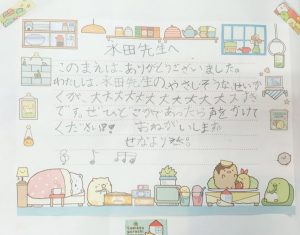 水田先生へ
このまえは、ありがとうございました。
わたしは、水田先生のやさしそうな、せいか
くが、大大大大大大大大大大大大すき
です。ぜひどこかであったら声をかけて
ください!!!! おねがいします。
せなより